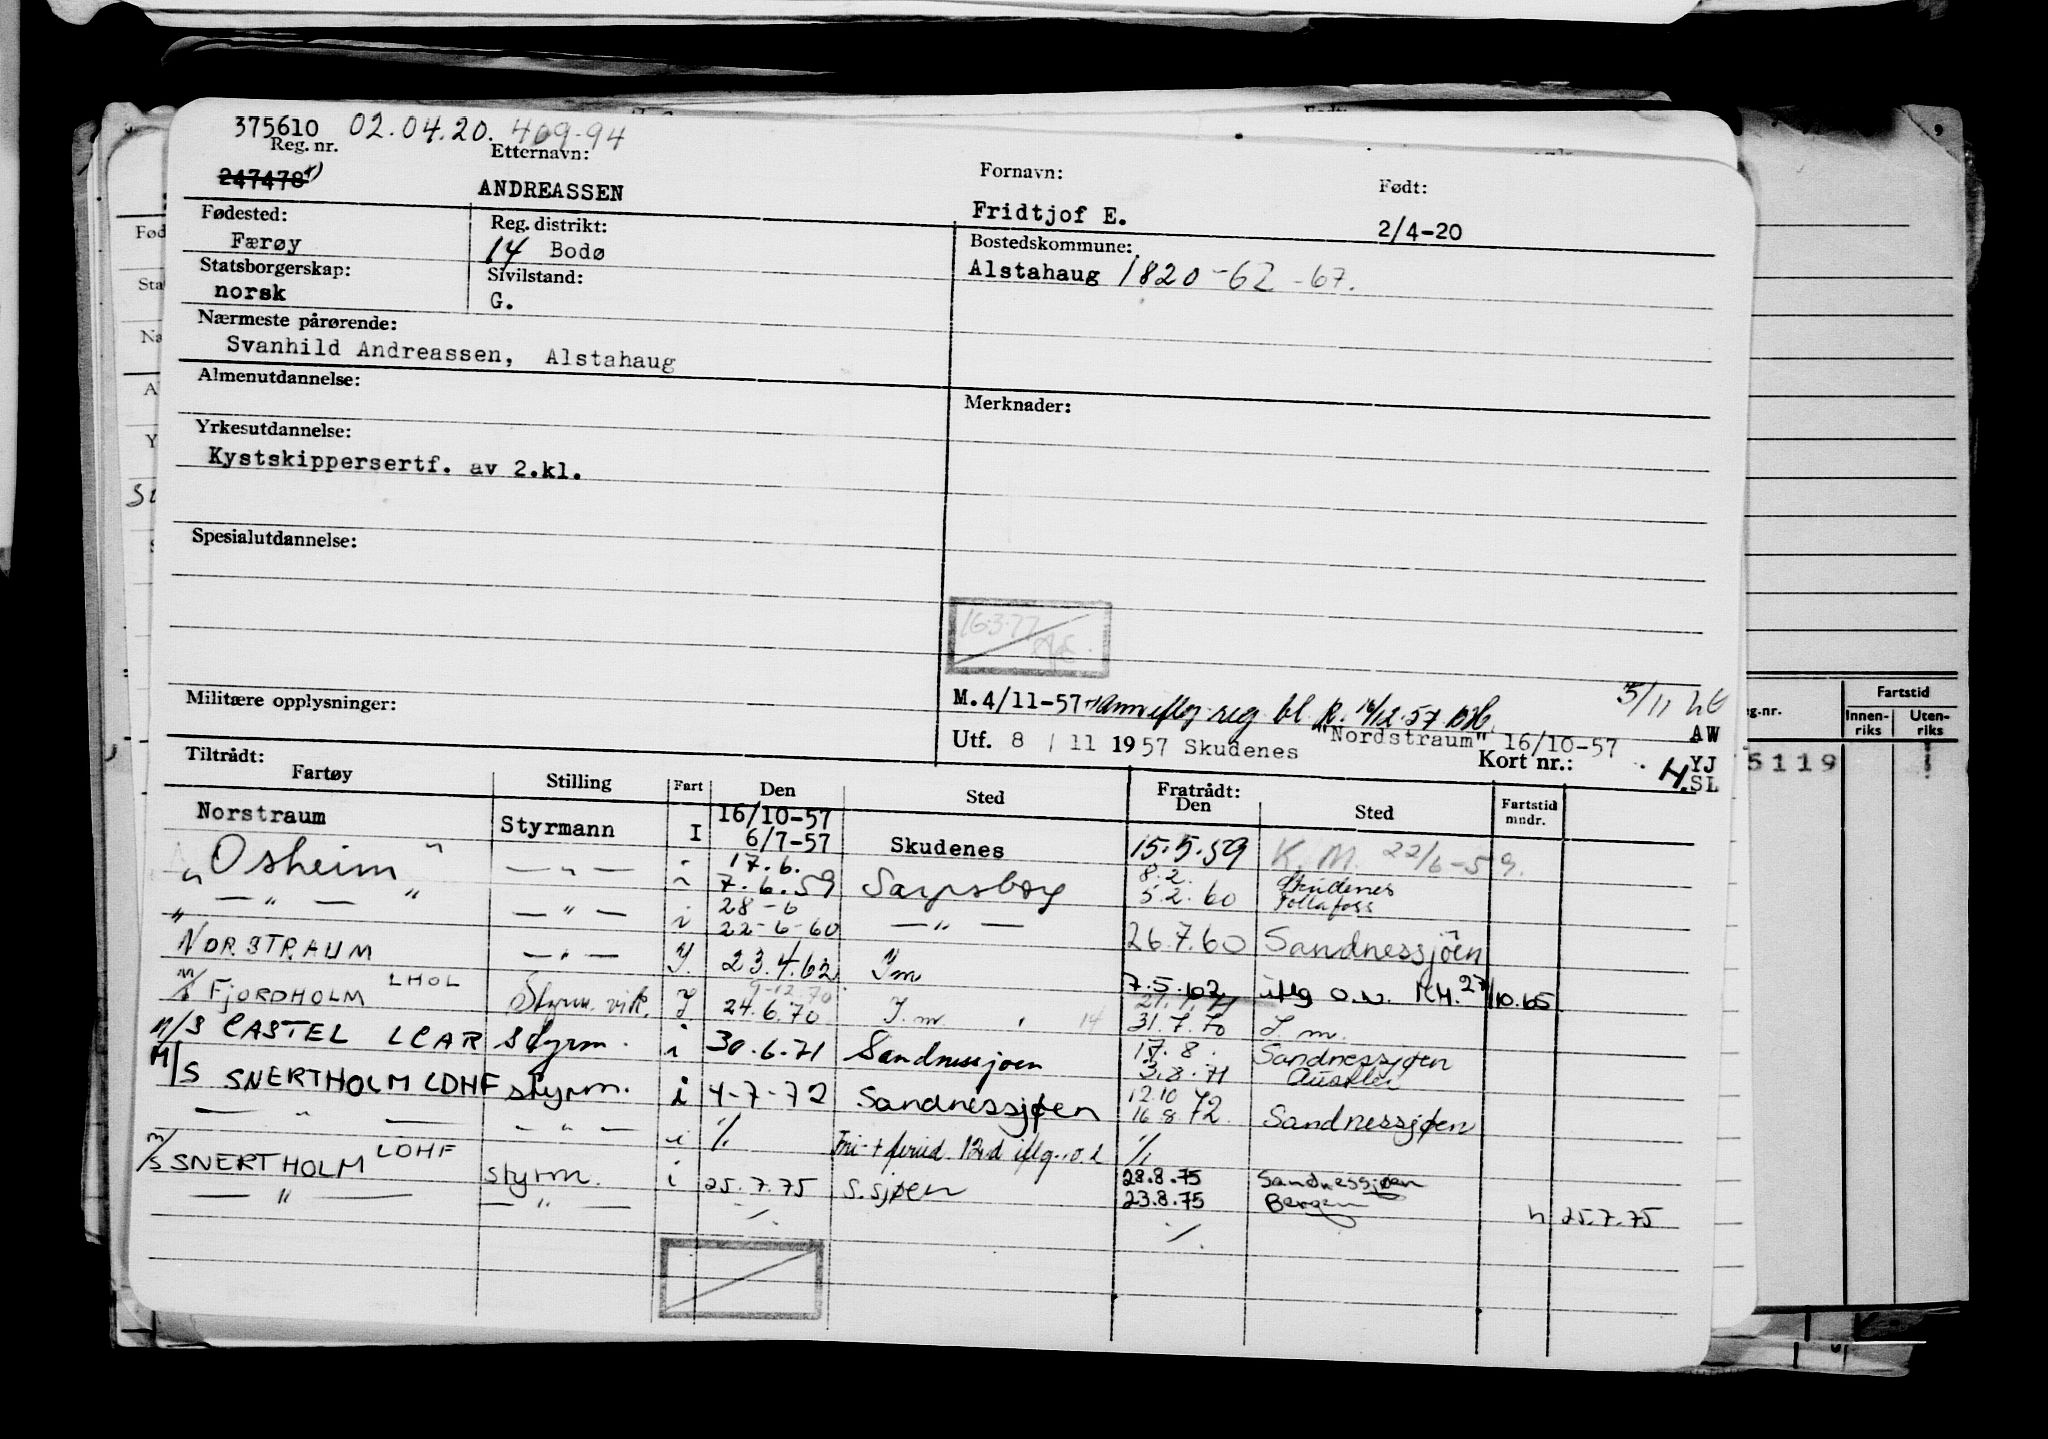 375610 02.04.20. 409-94
Reg. nr. Etternavn: Fornavn: Født:
247478 ANDREASSEN Fridtjof E. 2/4-20
Fødested: Reg. distrikt: Bostedskommune:
Færøy 14 Bodø Alstahaug 1820-62-67.
Statsborgerskap: Sivilstand:
norsk G.
Nærmeste pårørende:
Svanhild Andreassen, Alstahaug
Almenutdannelse: Merknader:
Yrkesutdannelse:
Kystskippersertf. av 2.kl.
Spesialutdannelse:
16.3.77
Militære opplysninger: M.4/11-57 reg. bl. R. 16/12-57 5/11
"Nordstraum" 16/10-57 AW
Utf. 8 / 11 1957 Skudenes Kort nr.: YJ
H. SL
Tiltrådt: Fratrådt:
Fartøy Stilling Fart Den Sted Den Sted Fartstid mndr.
Norstraum Styrmann I 16/10-57
6/7-57 Skudenes 15.5.59 K.M. 22/6-59.
"Osheim" — " — i 17.6.
7.6.59 Sarpsborg 8.2.
5.2.60 Skudenes
Tollafoss
" — " — " — " — i 28-6
22-6-60 — " — 26.7.60 Sandnessjöen
"NORSTRAUM" — " — I. 23.4.62 Im 7.5.62 iflg o.n. KH. 27/10.65
M/S FJORDHOLM LHOL Styrm. vik. I 9-12.70
24.6.70 I.m. 14 21.1.71
31.7.70 I.m.
M/S CASTEL LCAR Styrm. i 30.6.71 Sandnessjoen 17.8.
3.8.71 Sandnessjøen
M/S SNERTHOLM LDHF styrm. i 4-7-72 Sandnessjøen 12.10
16.8.72. Sandnessjøen
— " — — " — i ·/. Fri- + 12d iflg. o.l ·/.
M/S SNERTHOLM LDHF styrm. i 25.7.75 S.sjøen 28.8.75
23.8.75 Sandnessjøen
Bergen
— " — — " — ·/. ·/. h 25.7.75
Fartstid
Innenriks Utenriks
5119